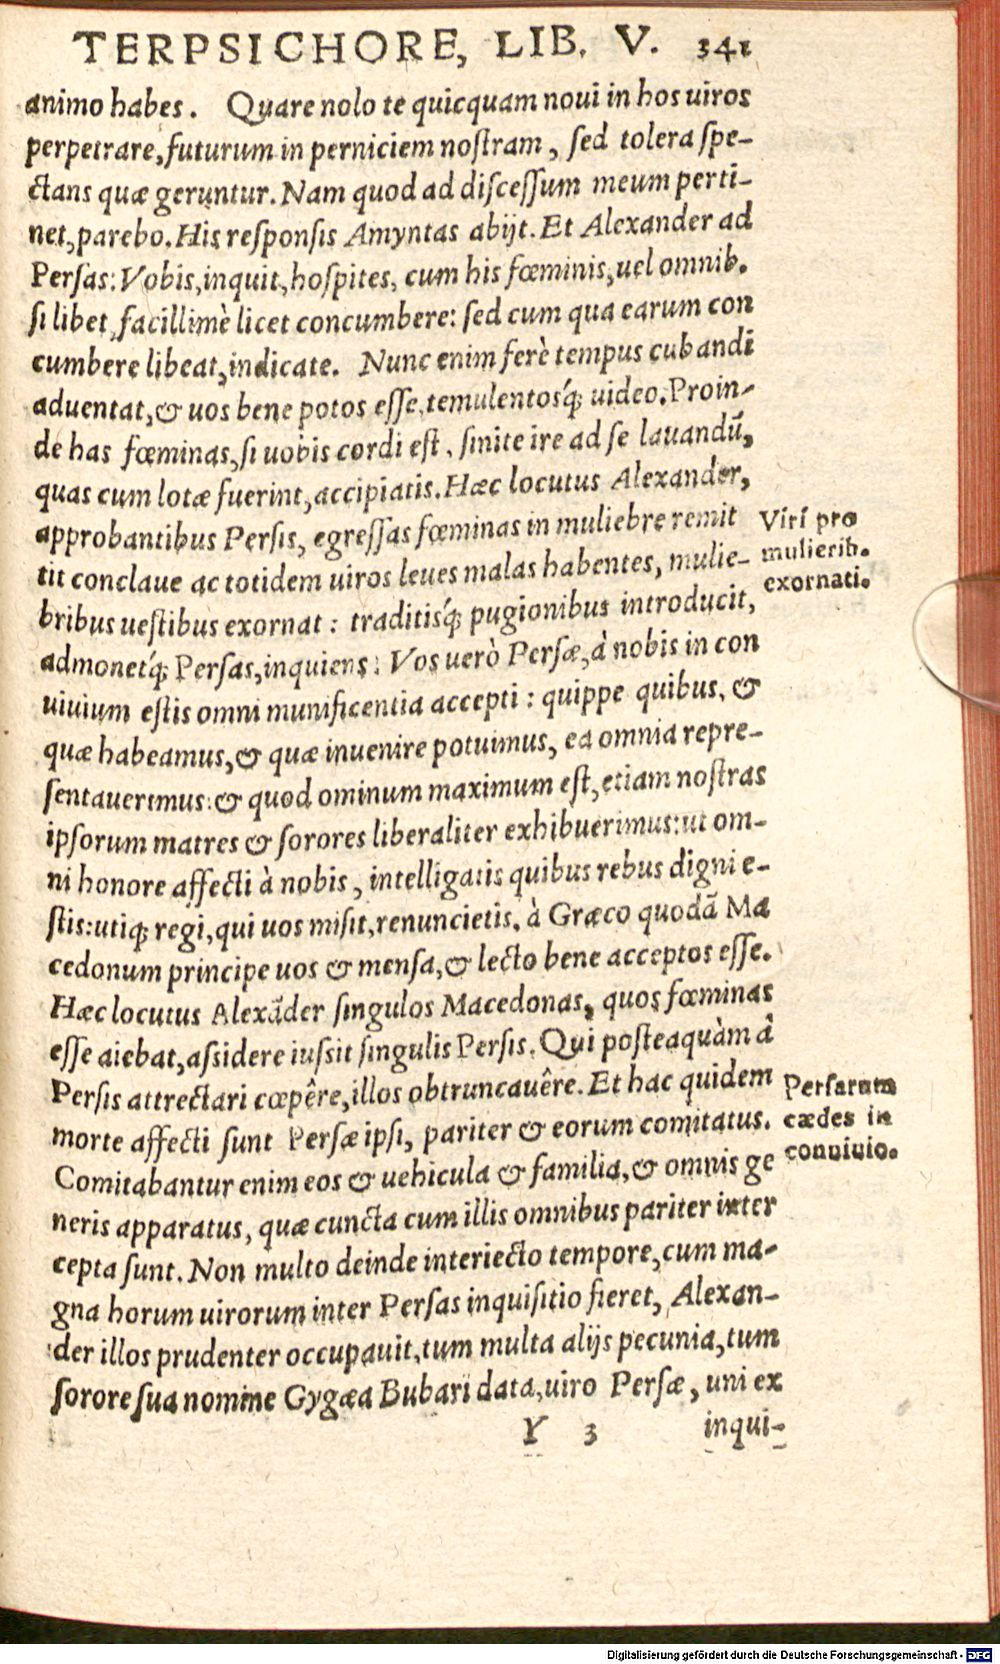 TERPSICHORE, LIB. V. 341
animo habes. Quare nolo te quicquam noui in hos uiros
perpetrare, futurum in perniciem noſtram, ſed tolera ſpe-
ctans quæ geruntur. Nam quod ad diſceſſum meum perti-
net, parebo. His reſponſis Amyntas abijt. Et Alexander ad
Perſas: Vobis, inquit, hoſpites, cum his fœminis, uel omnib.
ſi libet, facillimè licet concumbere: ſed cum qua earum con
cumbere libeat, indicate. Nunc enim ferè tempus cubandi
aduentat, & uos bene potos eſſe, temulentosq́; uideo. Proin-
de has fœminas, ſi uobis cordi eſt, ſinite ire ad ſe lauandū,
quas cum lotæ fuerint, accipiatis. Hæc locutus Alexander,
approbantibus Perſis, egreſſas fœminas in muliebre remit
tit conclaue ac totidem uiros leues malas habentes, mulie-
bribus ueſtibus exornat: traditisq́; pugionibus introducit,
admonetq́; Perſas, inquiens: Vos uerò Perſæ, à nobis in con
uiuium eſtis omni munificentia accepti: quippe quibus, &
quæ habeamus, & quæ inuenire potuimus, ea omnia repre-
ſentauerimus: & quod ominum maximum eſt, etiam noſtras
ipſorum matres & ſorores liberaliter exhibuerimus: ut om-
ni honore affecti à nobis, intelligatis quibus rebus digni e-
ſtis: utiq; regi, qui uos miſit, renuncietis, à Græco quodā Ma
cedonum principe uos & menſa, & lecto bene acceptos eſſe.
Hæc locutus Alexāder ſingulos Macedonas, quos fœminas
eſſe aiebat, aſsidere iuſsit ſingulis Perſis. Qui poſteaquàm â
Perſis attrectari cœpêre, illos obtruncauêre. Et hac quidem
morte affecti ſunt Perſæ ipſi, pariter & eorum comitatus.
Comitabantur enim eos & uehicula & familia, & omnis ge
neris apparatus, quæ cuncta cum illis omnibus pariter inter
cepta ſunt. Non multo deinde interiecto tempore, cum ma-
gna horum uirorum inter Perſas inquiſitio fieret, Alexan-
der illos prudenter occupauit, tum multa alijs pecunia, tum
ſorore ſua nomine Gygæa Bubari data, uiro Perſæ, uni ex
Y 3 inqui-
Viri pro
mulierib.
exornati.
Perſarum
cædes in
conuiuio.
Digitalisierung gefördert durch die Deutsche Forschungsgemeinschaft - DFG